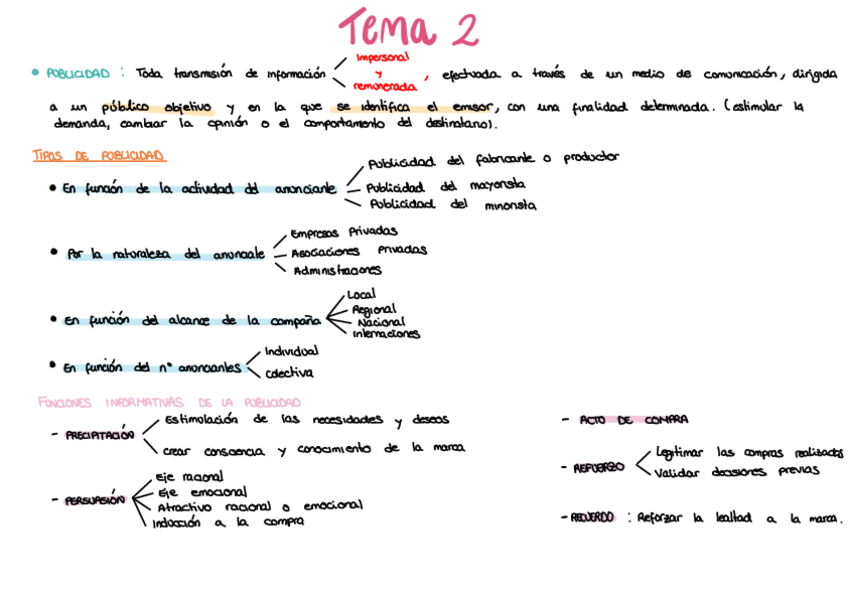 Tema 2
• PUBLICIDAD : Toda transmisión de información impersonal y remunerada, efectuada a través de un medio de comunicación, dirigida
a un público objetivo y en la que se identifica el emisor, con una finalidad determinada. (estimular la
demanda, cambiar la opinión o el comportamiento del destinatario).
TIPOS DE PUBLICIDAD
• En función de la actividad del anunciante
Publicidad del fabricante o productor
Publicidad del mayorista
Publicidad del minorista
• Por la naturaleza del anunciante
Empresas Privadas
Asociaciones Privadas
Administraciones
• En función del alcance de la campaña
Local
Regional
Nacional
Internaciones
• En función del nº anunciantes
Individual
Colectiva
FUNCIONES INFORMATIVAS DE LA PUBLICIDAD
- PRECIPITACIÓN
Estimolación de las necesidades y deseos
crear consciencia y conocimiento de la marca
- PERSUASIÓN
Eje racional
Eje emocional
Atractivo racional o emocional
Inducción a la compra
- ACTO DE COMPRA
- REFUERZO
Legitimar las compras realizadas
Validar decisiones previas
- RECUERDO : Reforzar la lealtad a la marca.